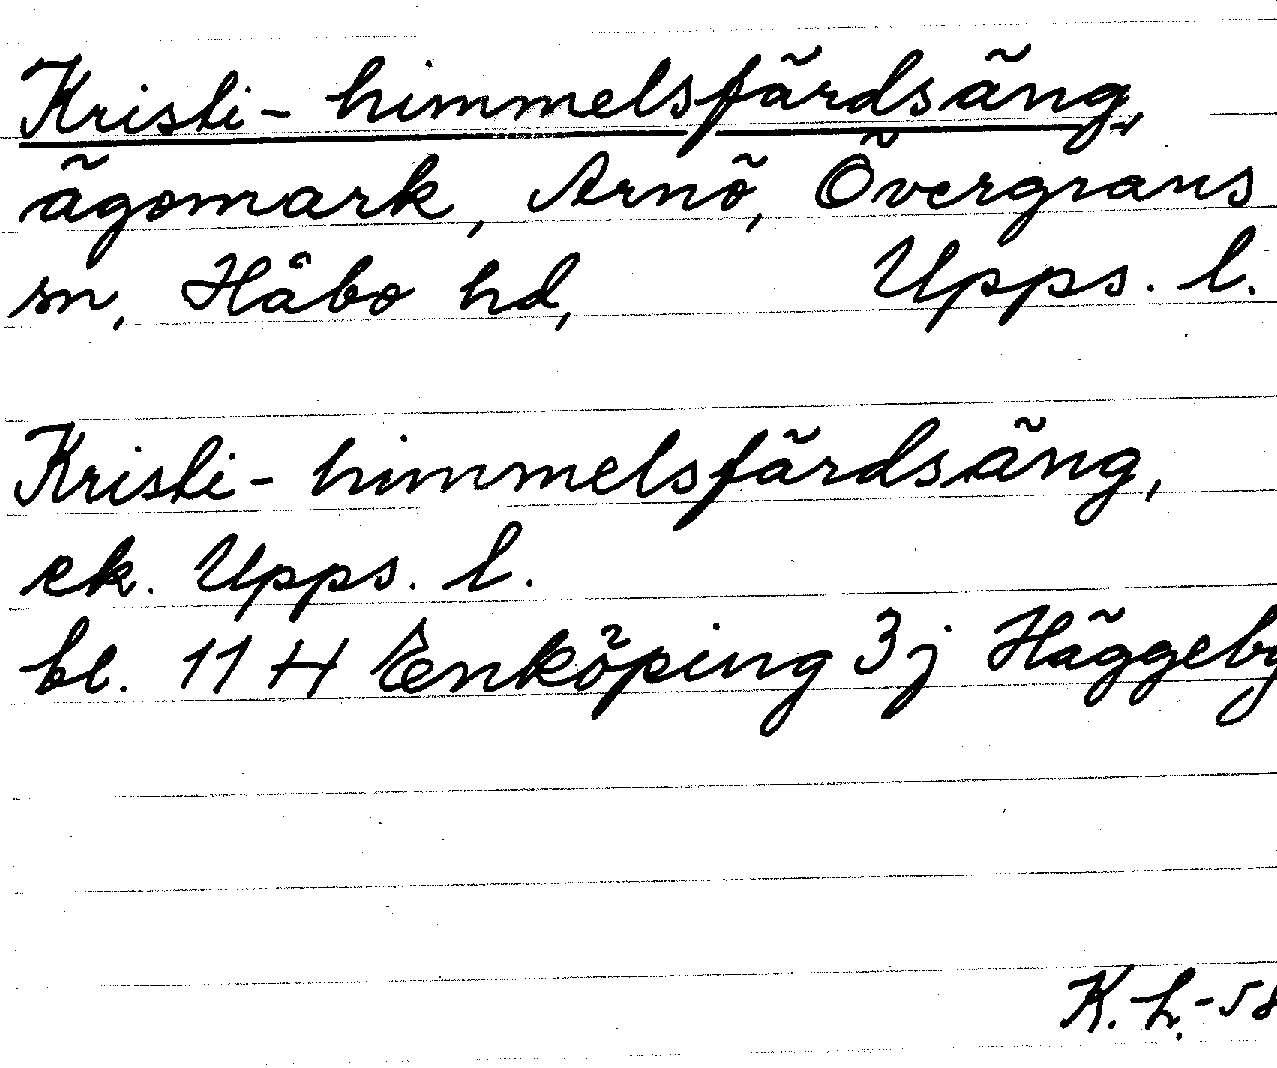 Kristi-himmelsfärdsäng,
ägomark, Arnö, Övergrans
sn, Håbo hd, Upps. l.
Kristi-himmelsfärdsäng,
ek. Upps. l.
bl. 11 H Enköping 3j Häggeby
K.-h.-58